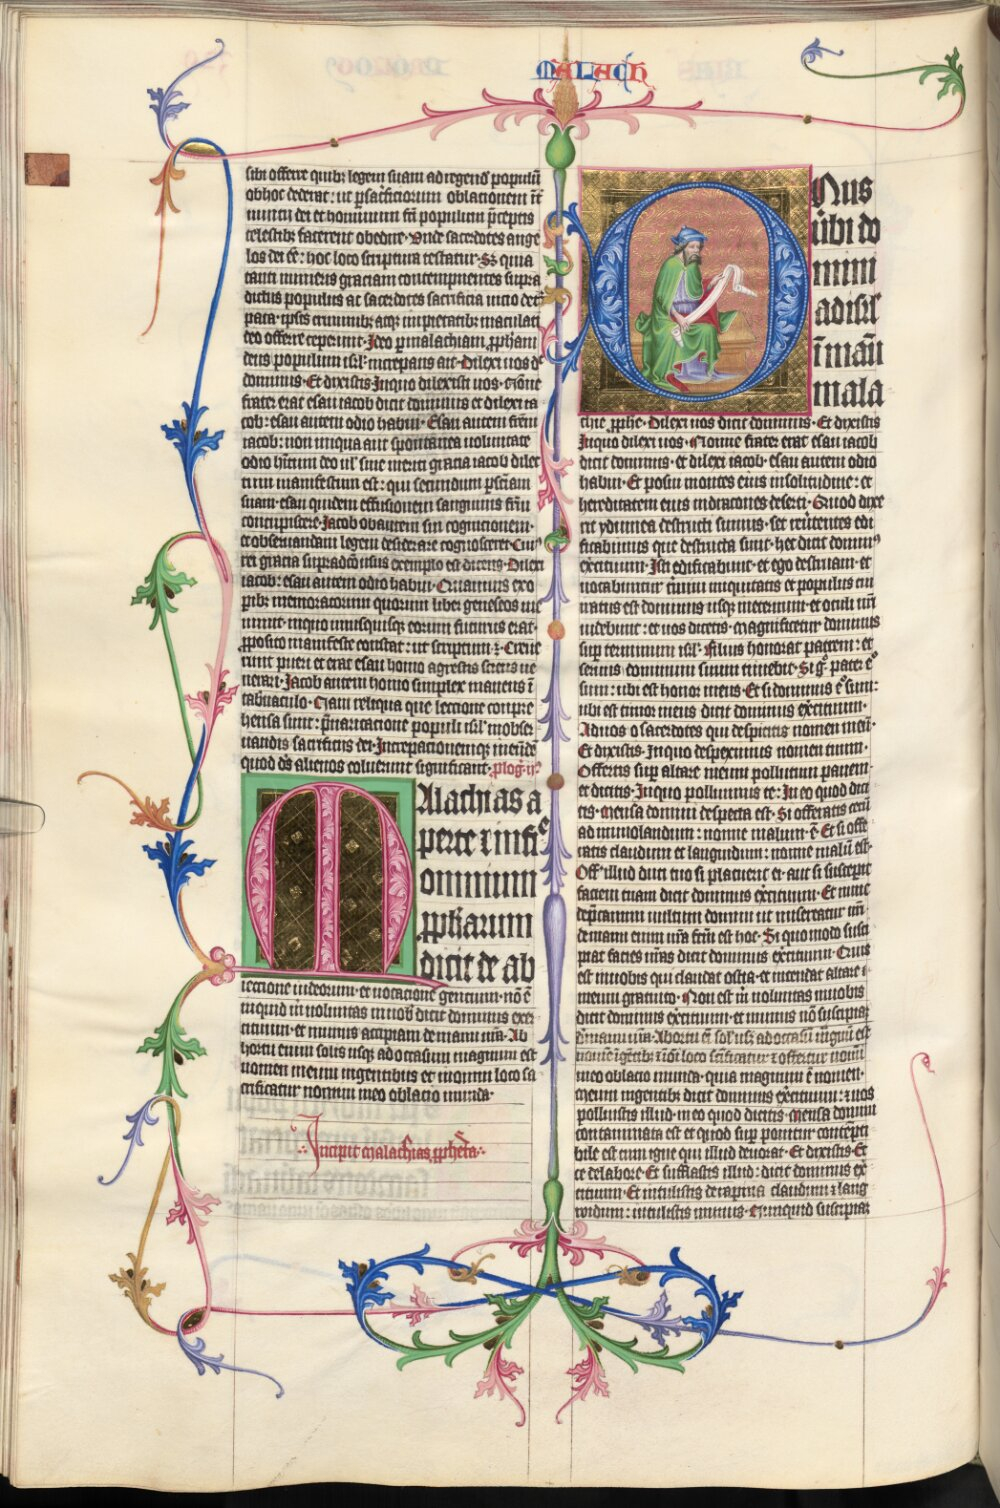 MALACH
sibi offerre quibz legem suam ad regend populū
obhoc dederat: ut p sacficiorum oblationem īt
uentu dei et hominum fn populum pceptis
celestibz facerent obedire. Unde sacerdotes ange
los dei ee: hoc loco scriptura testatur. Sz quia
tanti muneris graciam contempnentes supra
dictus populus ac sacerdotes sacrificia
ipses criminibz atqz impietatibz maculati
deo offerre ceperunt. Ideo p malachiam ppham
deus populum isrl increpans ait. Dilexi uos dt
dominus. Et dixistis. In quo dilexisti nos. Nōne
frater erat esau iacob dicit dominus et dilexi ia
cob: esau autem odio habui. Esau autem frem
iacob: non iniqua aut spontanea uoluntate
odio hitum deo ul sine meriti gracia iacob dilec
tum manifestum est: qui secundum psciam
suam esau quidem effusionem sanguinis fris
concupiscere. Jacob obaurem sui cognicionem.
et obseruandam legem desiderare cognosceret. Cui
rei gracia supradcm usus exemplo est dicens. Dilexi
iacob: esau autem odio habui. Quamuis exo
ptibz memoratorum quorum liber geneseos me
minit. in quo unusquisqz eorum futurus erat.
pposito manifeste constat: ut scriptum ē. Creue
runt pueri et erat esau homo agrestis sciens ue
nerari. Jacob autem homo simplex manens ī
tabnaculo. Nam reliqua que lectione compre
hensa sunt: puaricatione populi isrl in obser
uandis sacrificiis dei. Increpationemqz in eūde
quod ds alienos coluerunt significant. plog. ii.
Malachias a
perte
omnium
ppharum
dicit de ab
iectione iudeorum. et uocatione gencium. nō ē
inquid in uoluntas in uob dicit dominus exer
cituum. et munus accipiam de manu ura. Ab
hortu enim solis usqz ad occasum magnum est
nomen meum in gentibus et in omni loco sa
crificatur nomini meo oblacio munda.
Incipit malachias ppheta.
Onus
uerbi do
mini
ad isrl
ī manu
mala
chie pphe. Dilexi uos dicit dominus. Et dixistis
In quo dilexi nos. Nonne frater erat esau iacob
dicit dominus. et dilexi iacob. esau autem odio
habui. Et posui montes eius in solitudine: et
hereditatem eius in dracones deserti. Quod dixe
rit ydumea destructi sumus. set reutentes edi
ficabimus que destructa sunt. hec dicit domin
exercituum. Isti edificabunt. et ego destruam: et
uocabuntur tmini iniquitatis et populus cui
iratus est dominus usqz in eternum. et oculi uri
uidebunt: et uos dicetis. Magnificetur dominus
sup terminum isrl. Filius honorat patrem: et
seruus dominum suum timebit. Si g pater ē
sum: ubi est honor meus. Et si dominus ē sum:
ubi est timor meus dicit dominus exercituum.
Ad uos o sacerdotes qui despicitis nomen meū.
Et dixistis. In quo despeximus nomen tuum.
Offertis sup altare meum pollutum panem.
et dicitis. In quo polluimus te: In eo quod dici
tis. Mensa domini despecta est. Si offeratis cecū
ad immolandum: nonne malum ē. Et si offe
ratis claudum et languidum: nonne malū est.
Off illud duci tuo si placuerit ei. aut si susceperit
faciem tuam dicit dominus exercituum. Et nunc
depcamini uultum domini ut misereatur uri
de manu enim ura fcm est hoc. Si quo modo susci
piat facies uras dicit dominus exercituum. Quis
est in uobis qui claudat ostia. et incendat altare
meum gratuito. Non est m uoluntas in uobis
dicit dominus exercituum. et munus nō suscipiam
de manu ura. Ab ortu eī sol usz ad occasū magnū est
nomē ī gentibz ī oī loco scificatur et offertur nomī
meo oblacio munda. quia magnum ē nomen.
meum in gentibz dicit dominus exercituum: et uos
polluistis illud. in eo quod dicitis. Mensa domini
contaminata est et quod sup ponitur contepti
bile est cum igne qui illud deuorat. Et dixistis. Ec
ce de labore. Et sufflastis illud: dicit dominus ex
cituum. Et intulistis de rapina claudum et lang
uidum: intulistis munus. Numquid suscipiaz